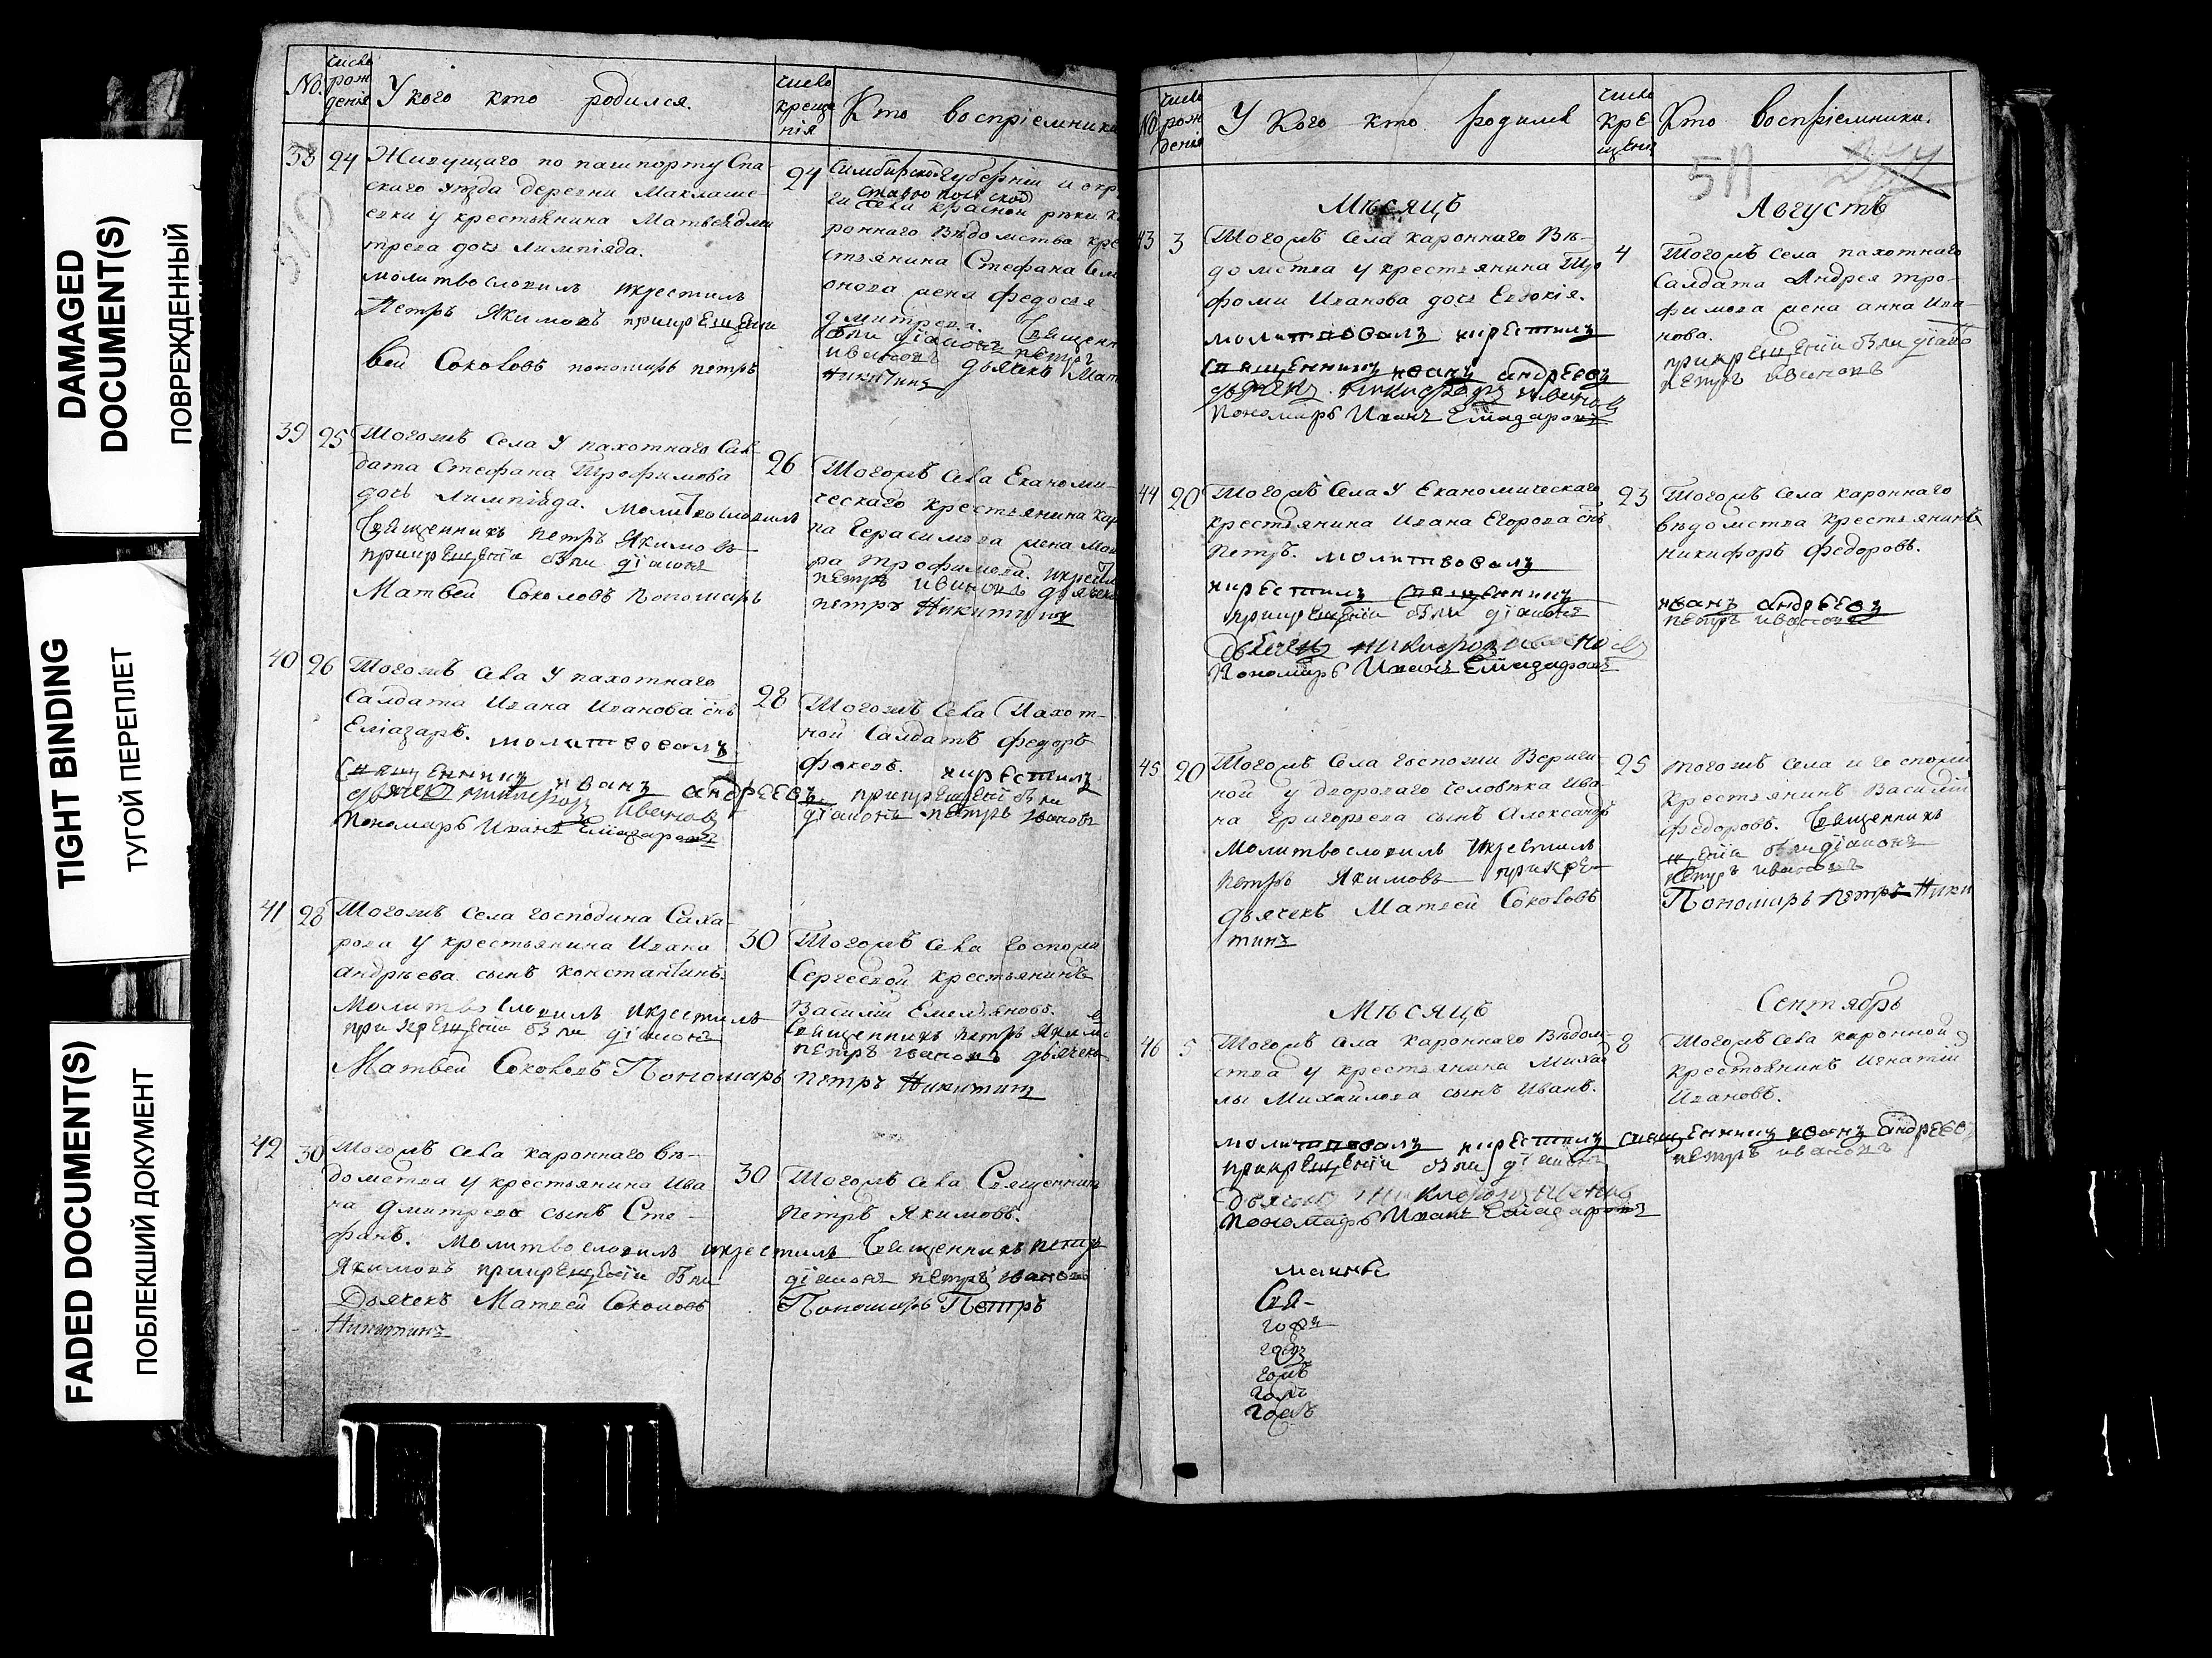 DAMAGED
DOCUMENT(S)
ПОВРЕЖДЕННЫЙ
TIGHT BINDING
ТУГОЙ ПЕРЕПЛЕТ
FADED DOCUMENT(S)
ПОБЛЕКШИЙ ДОКУМЕНТ
No.
число
рож
денія
У кого кто родился.
число
креще
нія
Кто воспріемники
38
24
Живущаго по пашпорту Спа-
скаго уѣзда деревни Маклаше-
евки у крестьянина Матвея дми
трева дочь Лимпіяда.
молитвословилъ икрестилъ
Петръ Якимовъ прикрещеніи
вей Соколовъ пономарь петръ
24
Симбирской Губерніи и окр
Ставропольской
села красной реки к
роннаго Вѣдомства кре
стьянина Стефана Сем
онова жена Федосья
дмитрева. Священ
были діаконъ петръ
ивановъ дьячекъ Мат
Никитинъ
39
25
Тогожъ Села У пахотнаго Сал-
дата Стефана Трофимова
дочь Лимпіяда. Молитвословилъ
Священникъ петръ Якимовъ
прикрещеніи были діаконъ
Матвей Соколовъ пономарь
26
Тогожъ Села Економи-
ческаго крестьянина кар
па Герасимова жена Мав
ра Трофимова. икрестил
петръ ивановъ дьячекъ
петръ Никитинъ
40
26
Тогожъ Села У пахотнаго
Салдата Ивана Иванова снъ
Еліазаръ. молитвовалъ
Священникъ иванъ андреевъ
дьячекъ никифоръ Ивановъ
пономарь Иванъ Еліазаровъ
28
Тогожъ Села Пахот-
ной Салдатъ Федоръ
Фокевъ. икрестилъ
прикрещеніи были
діаконъ петръ ивановъ
41
28
Тогожъ Села господина Саха-
рова у крестьянина Ивана
андрѣева сынъ константинъ.
Молитвословилъ икрестилъ
при крещеніи были діаконъ
Матвей Соколовъ Пономарь
30
Тогожъ Села Госпожи
Сергеевой крестьянинъ
Василій Емельяновъ.
Священникъ петръ Якимо
петръ ивановъ дьячекъ
петръ Никитинъ
42
30
Тогожъ Села каронного вѣ-
домства у крестьянина Ива
на Дмитрева сынъ Сте-
фанъ. Молитвословилъ икрестилъ Священникъ петръ
Якимовъ прикрещеніи были
Дьячекъ Матвей Соколовъ
Никитинъ
30
Тогожъ Села Священникъ
Петръ Якимовъ.
діаконъ петръ ивановъ
Пономарь Петръ
No
число
рож
денія
У Кого кто родился
число
кре
щенія
Кто воспріемники.
511
Мѣсяцъ
Августъ
43
3
Тогожъ Села каронного Вѣ-
домства у крестьянина Тро
фима Иванова дочь Евдокія.
молитвовалъ икрестилъ
Священникъ иванъ андреевъ
дьячекъ никифоръ ивановъ
Пономарь Иванъ Еліазаровъ
4
Тогожъ села пахотнаго
Салдата Андрея тро-
фимова жена анна Ива-
нова.
прикрещеніи были діако
петръ ивановъ
44
20
Тогожъ Села У Економическаго
крестьянина Ивана Егорова снъ
Петръ. молитвовалъ
икрестилъ Священникъ
прикрещеніи были діаконъ
дьячекъ никифоръ ивановъ
Пономарь Иванъ Еліазаровъ
23
Тогожъ Села каронного
вѣдомства крестьянинъ
никифоръ Федоровъ.
иванъ андреевъ
петръ ивановъ
45
20
Тогожъ Села госпожи Вериги-
ной у двороваго человѣка Ива
на Григорьева сынъ Александръ
Молитвословилъ икрестилъ
петръ Якимовъ прикре-
дьячекъ Матвей Соколовъ
тинъ
25
тогожъ Села и госпожи
крестьянинъ Василій
Федоровъ. Священникъ
щеніи были діаконъ
петръ ивановъ
Пономарь петръ Ники
Мѣсяцъ
Сентябрь
46
5
Тогожъ Села каронного Вѣдом-
ства у крестьянина Михай
лы Михайлова сынъ Иванъ.
молитвовалъ икрестилъ священникъ иванъ андреев
прикрещеніи были діаконъ
дьячекъ никифоръ ивановъ
Пономарь Иванъ Еліазаровъ
8
Тогожъ Села каронной
крестьянинъ Игнатій
Ивановъ.
петръ ивановъ